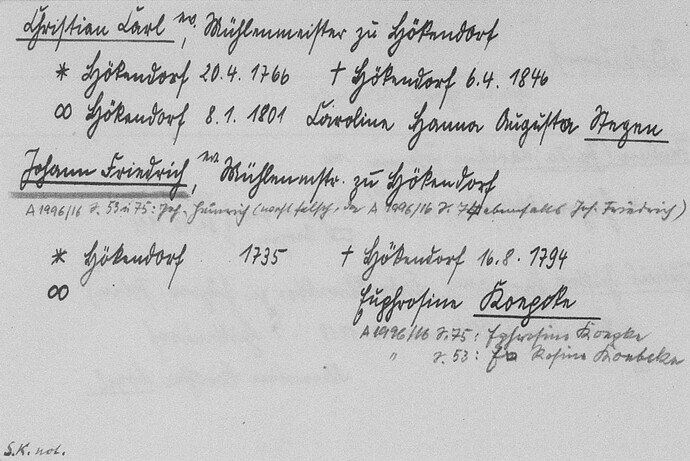 Christian Carl, ev. Mühlenmeister zu Hökendorf
* Hökendorf 20.4.1766 † Hökendorf 6.4.1846
∞ Hökendorf 8.1.1801 Caroline Hanna Augusta Stegen
Johann Friedrich, ev. Mühlenmstr. zu Hökendorf
A 1996/16 S. 53 u 75: Joh. Heinrich (wohl falsch, da A 1996/16 S. 74 ebenfalls Joh. Friedrich)
* Hökendorf . . 1735 † Hökendorf 16.8.1794
∞ Euphrosine Koepcke
A 1996/16 S. 75: Ephrosine Koepke
" S. 53: Rosine Koebcke
S.K. not.